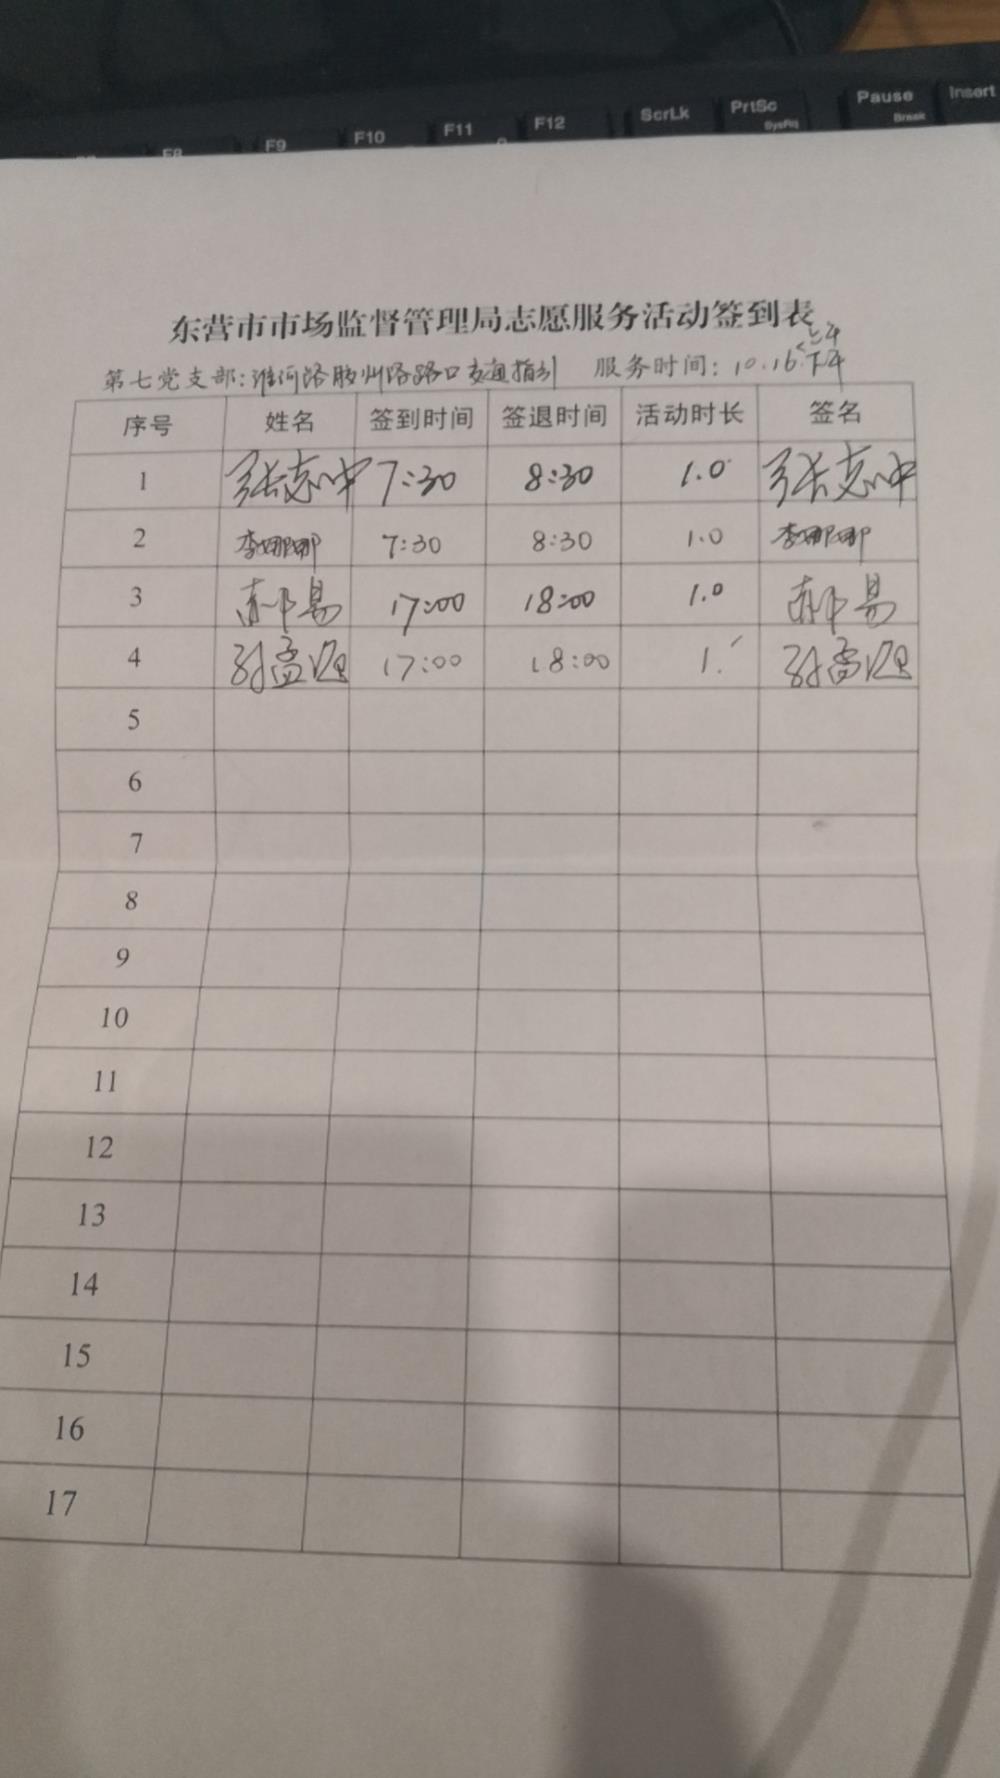 F8 F9 F10 F11 F12 ScrLk PrtSc SysRq Pause Break Insert
东营市市场监督管理局志愿服务活动签到表
上午
第七党支部:淮河路胶州路路口交通指引 服务时间:10.16.下午
序号 姓名 签到时间 签退时间 活动时长 签名
1 张志冲 7:30 8:30 1.0 张志冲
2 李娜娜 7:30 8:30 1.0 李娜娜
3 易 17:00 18:00 1.0 易
4 孙 17:00 18:00 1. 孙
5
6
7
8
9
10
11
12
13
14
15
16
17